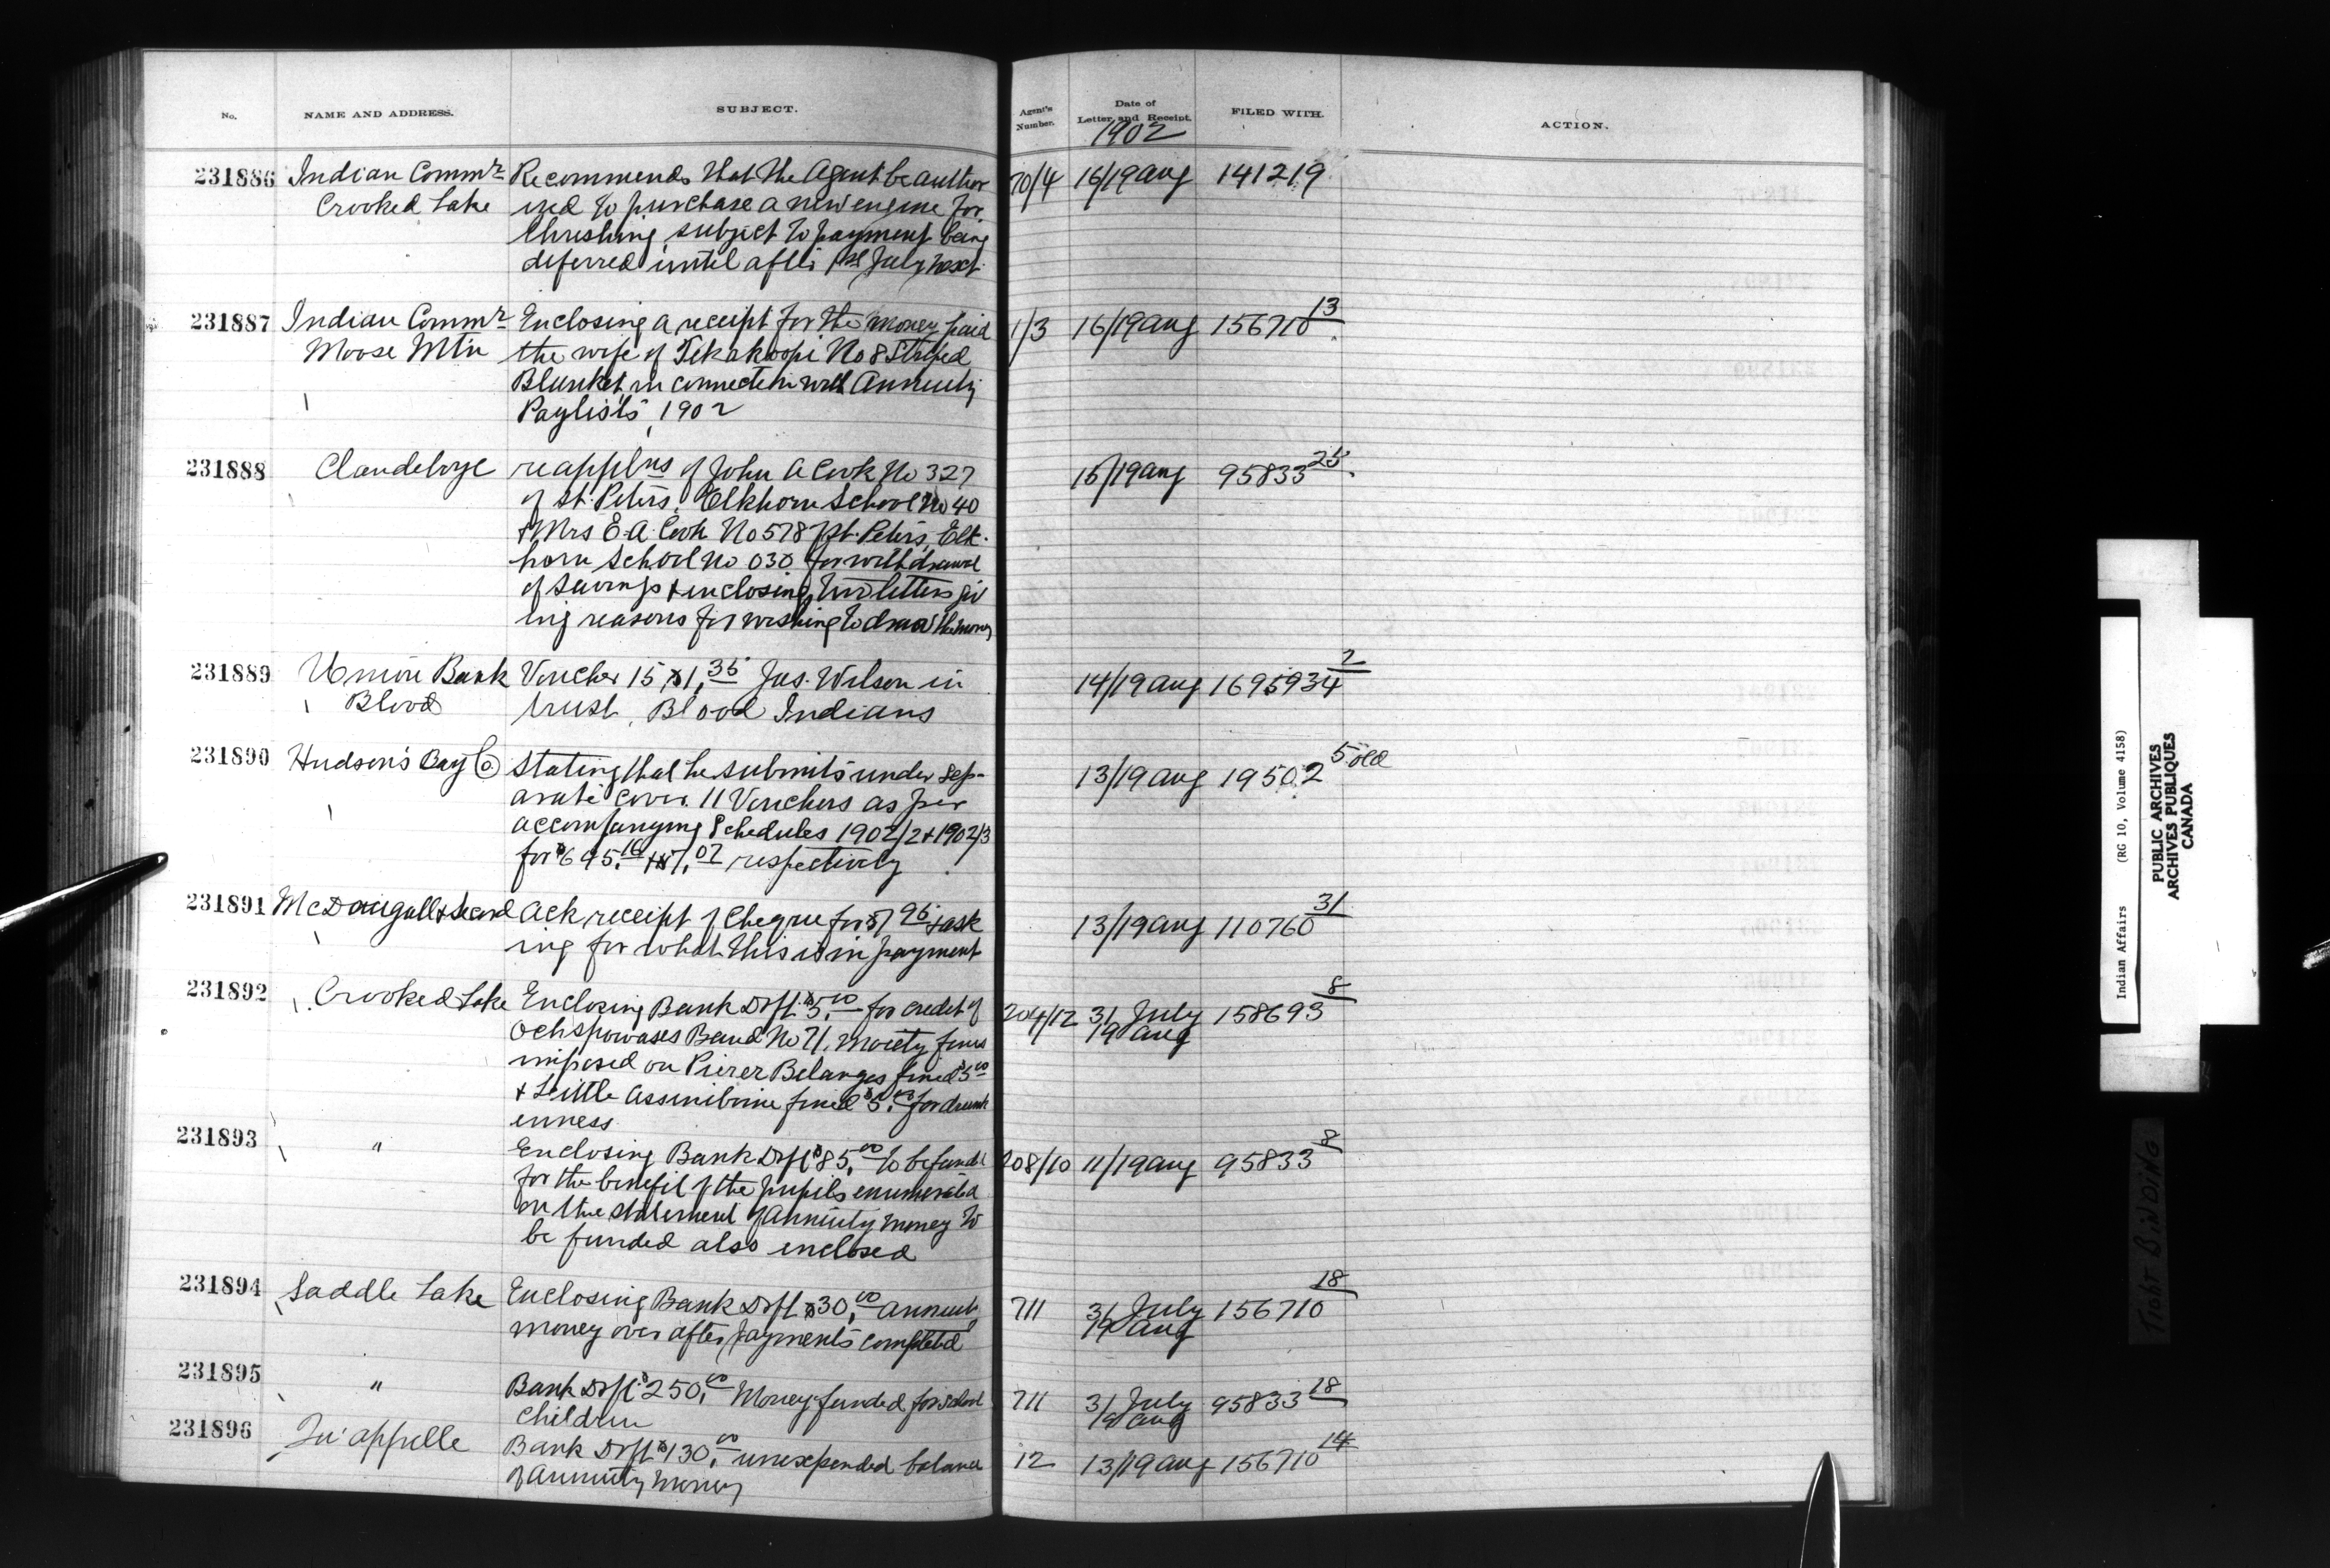 No. NAME AND ADDRESS. SUBJECT. Agent's Number. Date of Letter and Receipt. FILED WITH. ACTION.
1902
231886 Indian Commr Recommends that the Agent be author 70/4 16/19 Aug 141219
Crooked Lake ized to purchase a new engine for
threshing, subject to payment being
deferred until after 1st July next
231887 Indian Commr Enclosing a receipt for the money paid 1/3 16/19 Aug 156710 13
Moose Mtn the wife of Tekakoopi No 8 Striped
Blanket, in connection with Annuity
Paylists, 1902
231888 Clandeboye re applns of John A Cook No 327 15/19 Aug 95833 25
of St. Peters, Elkhorn School No 40
& Mrs E. A. Cook No 578 St. Peters, Elk-
horn School No 030 for withdrawal
of savings & enclosing two letters giv
ing reasons for wishing to draw the money
231889 Union Bank Voucher 15, $1.35 Jas. Wilson in 14/19 Aug 169593 2
Blood trust, Blood Indians
231890 Hudson's Bay Co. Stating that he submits under sep- 13/19 Aug 19502 5 old
arate cover 11 Vouchers as per
accompanying Schedules 1902/2 & 1902/3
for $695.16 respectively
231891 McDougall & Secord Ack receipt of Cheque for $7.95 & ask 13/19 Aug 110760 31
ing for what this is in payment
231892 Crooked Lake Enclosing Bank Dft. $5.00 for credit of 204/12 31 July 158693 8
Ochapowases Band No 71. moiety fines 19 Aug
imposed on Pierer Belanges fined $5.00
& Little Assiniboine fined $5.00 for drunk
enness
231893 " Enclosing Bank Dft $85.00 to be funded 208/10 11/19 Aug 95833 8
for the benefit of the pupils enumerated
on the statement of Annuity money to
be funded also enclosed
231894 Saddle Lake Enclosing Bank Dft $30.00 annuity 711 31 July 156710 18
money over after payments completed 19 Aug
231895 " Bank Dft $250.00 Money funded for school 711 31 July 95833 18
children 19 Aug
231896 Qu'appelle Bank Dft $130.00 unexpended balance 12 13/19 Aug 156710 14
of Annuity money
Indian Affairs (RG 10, Volume 4158)
PUBLIC ARCHIVES
ARCHIVES PUBLIQUES
CANADA
Tight BiNDiNG